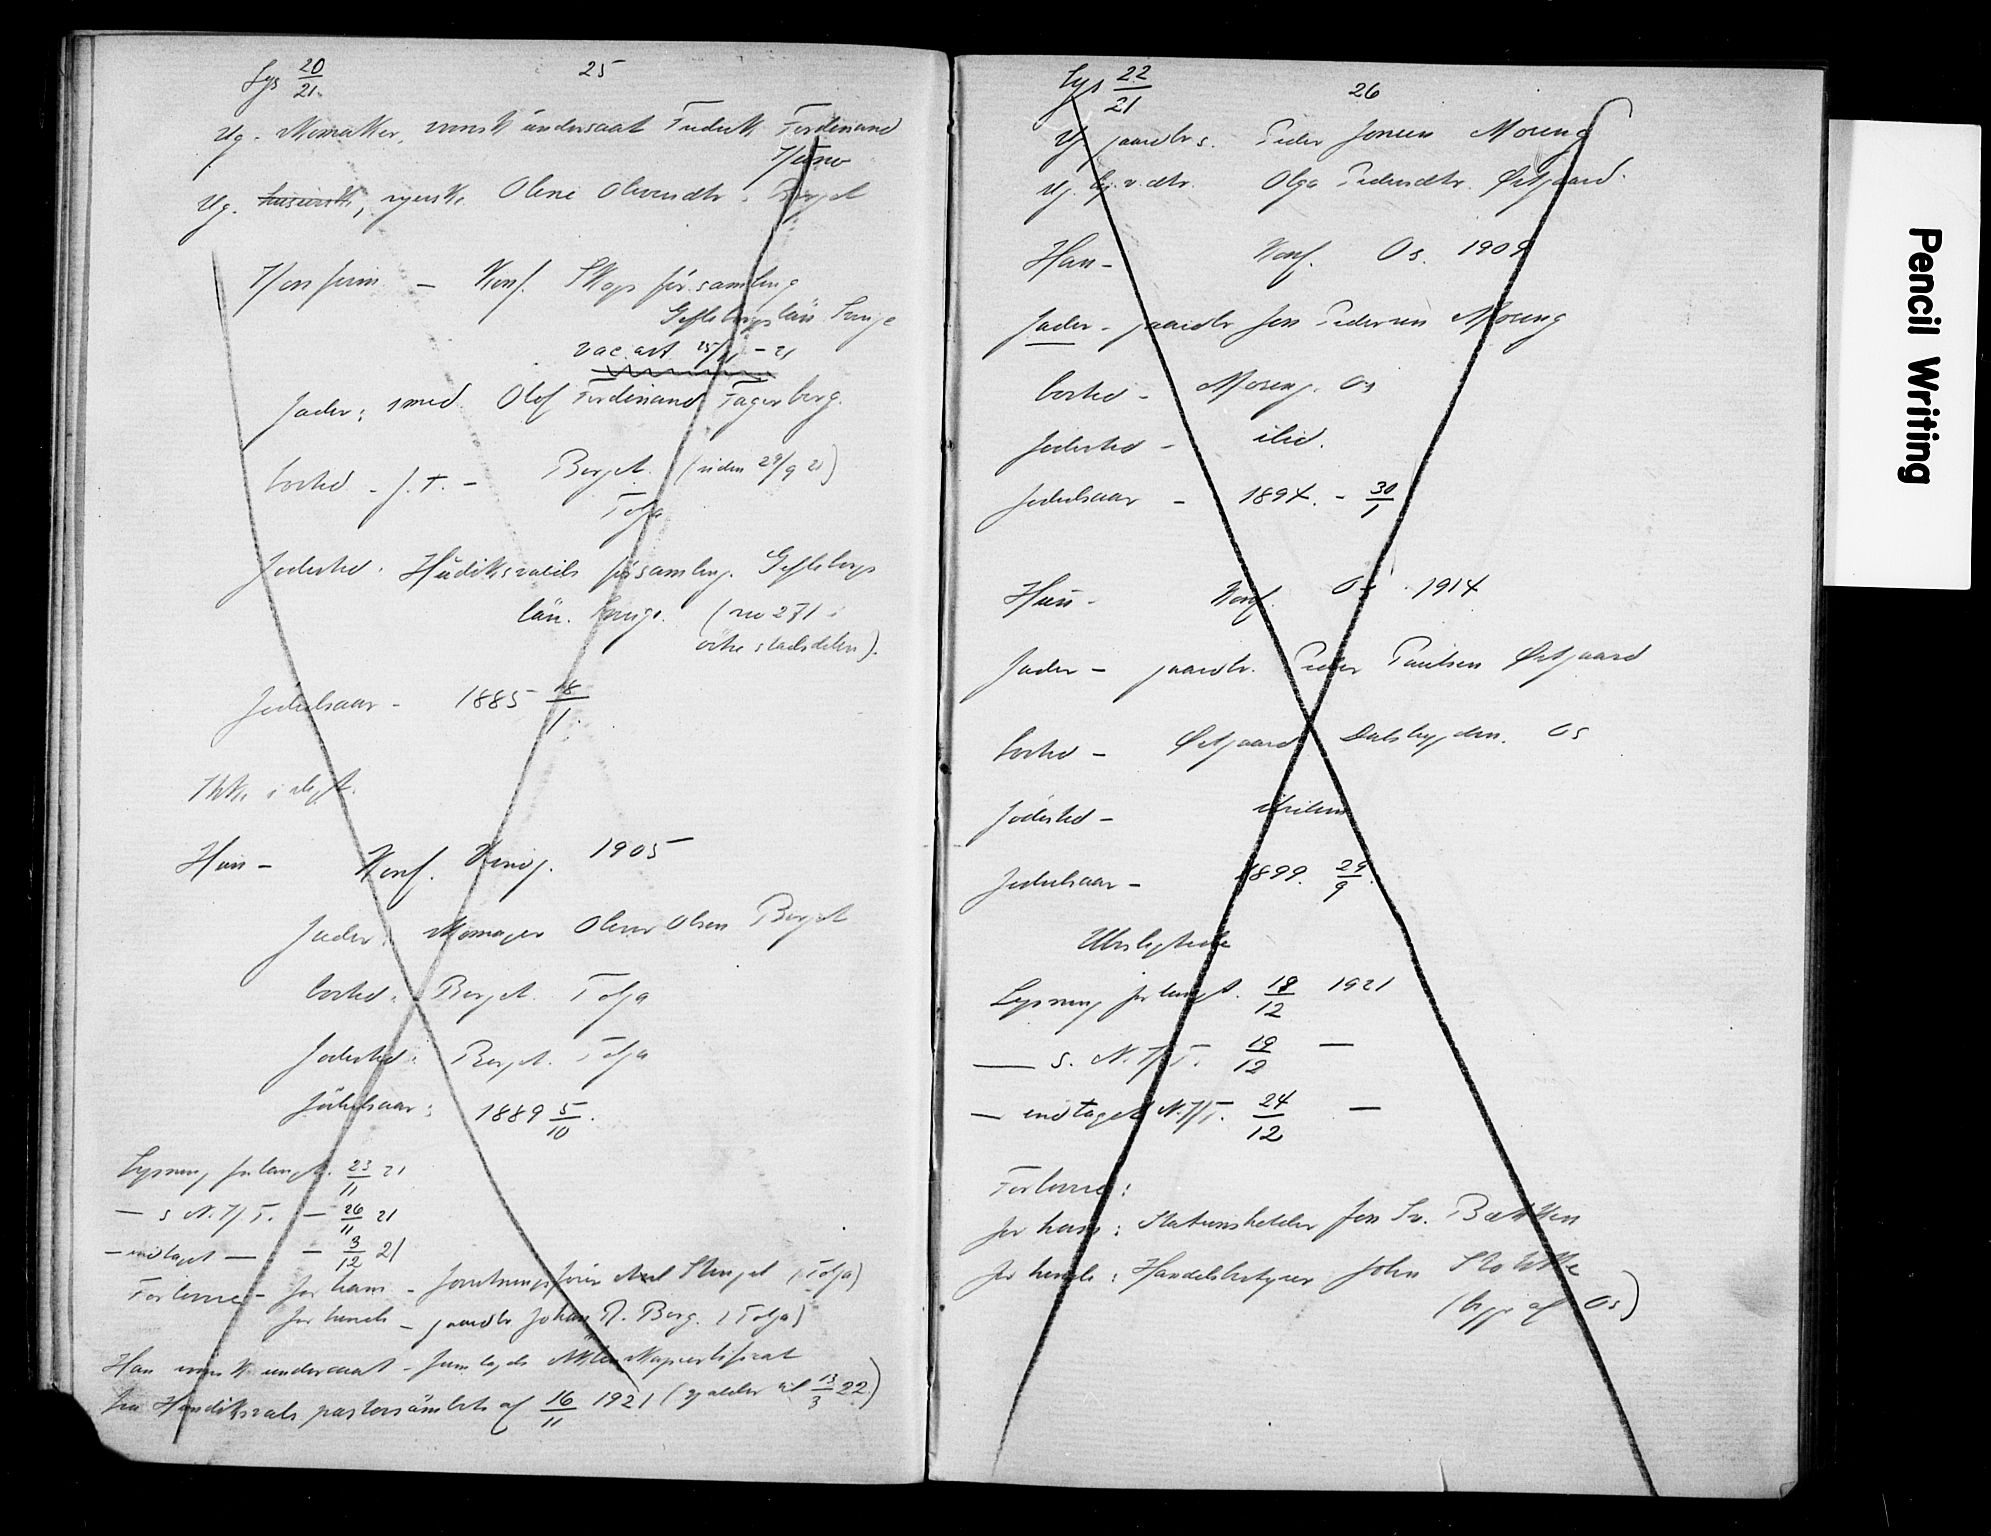 Lys 20/21.
25
Ug. svensk undersaat Fredrik Ferdinand
Ug. Oline Olversdtr. Berget
Konf. församling
Gefleborgs län
vac. att. 25/11 - 21
Fader: smed Olof Ferdinand Fagerberg.
bosted - f. t. - Berget. (siden 29/9 21)
Tolga
Fødested: Hudiksvalls församling. Gefleborgs
län. Sverige. (no 271 i
östre stadsdelen).
Fødselsaar - 1885 18/1.
Ikke i slegt.
Hun - Konf. Vinger. 1905
Fader: Olsen Berget
bosted: Berget. Tolga
Fødested: Berget. Tolga
Fødselsaar: 1889 5/10.
Lysning forlangt. 23/11 21
— s N. T. — 26/11 21
— indtaget — — 3/12 21
Forlovere - for ham - forretningsfører Stengel (Tolga)
for hende - gaardbr Johan Berg. (Tolga)
Han svensk undersaat - fremlagde
fra Hudiksvals pastorsämbete af 16/11 1921 (gjælder til 13/3 22)
Lys 22/21
26
Ug. gaardbrs. Peder Jonsen Moreng
Ug. Olga Pedersdtr. Østgaard.
Han - Konf. Os. 1909
Fader - gaardbr Jon Pedersen Moreng
bosted - Moreng. Os
Fødested - ibid.
Fødselsaar - 1894. - 30/1
Hun - Konf. Os. 1914
Fader - gaardbr. Peder Paulsen Østgaard
bosted - Østgaard Dalsbygden. Os
Fødested - ibidem
Fødselsaar - 1899. 29/9.
Ubeslegtede
Lysning forlangt. 18/12 1921
— s. N. T. 19/12 —
— indtaget N. T. 24/12 —
Forlovere:
for ham: Stationsholder Jon Sv. Bakken
for hende: Handelsbestyrer John
(begge af Os)
Pencil Writing